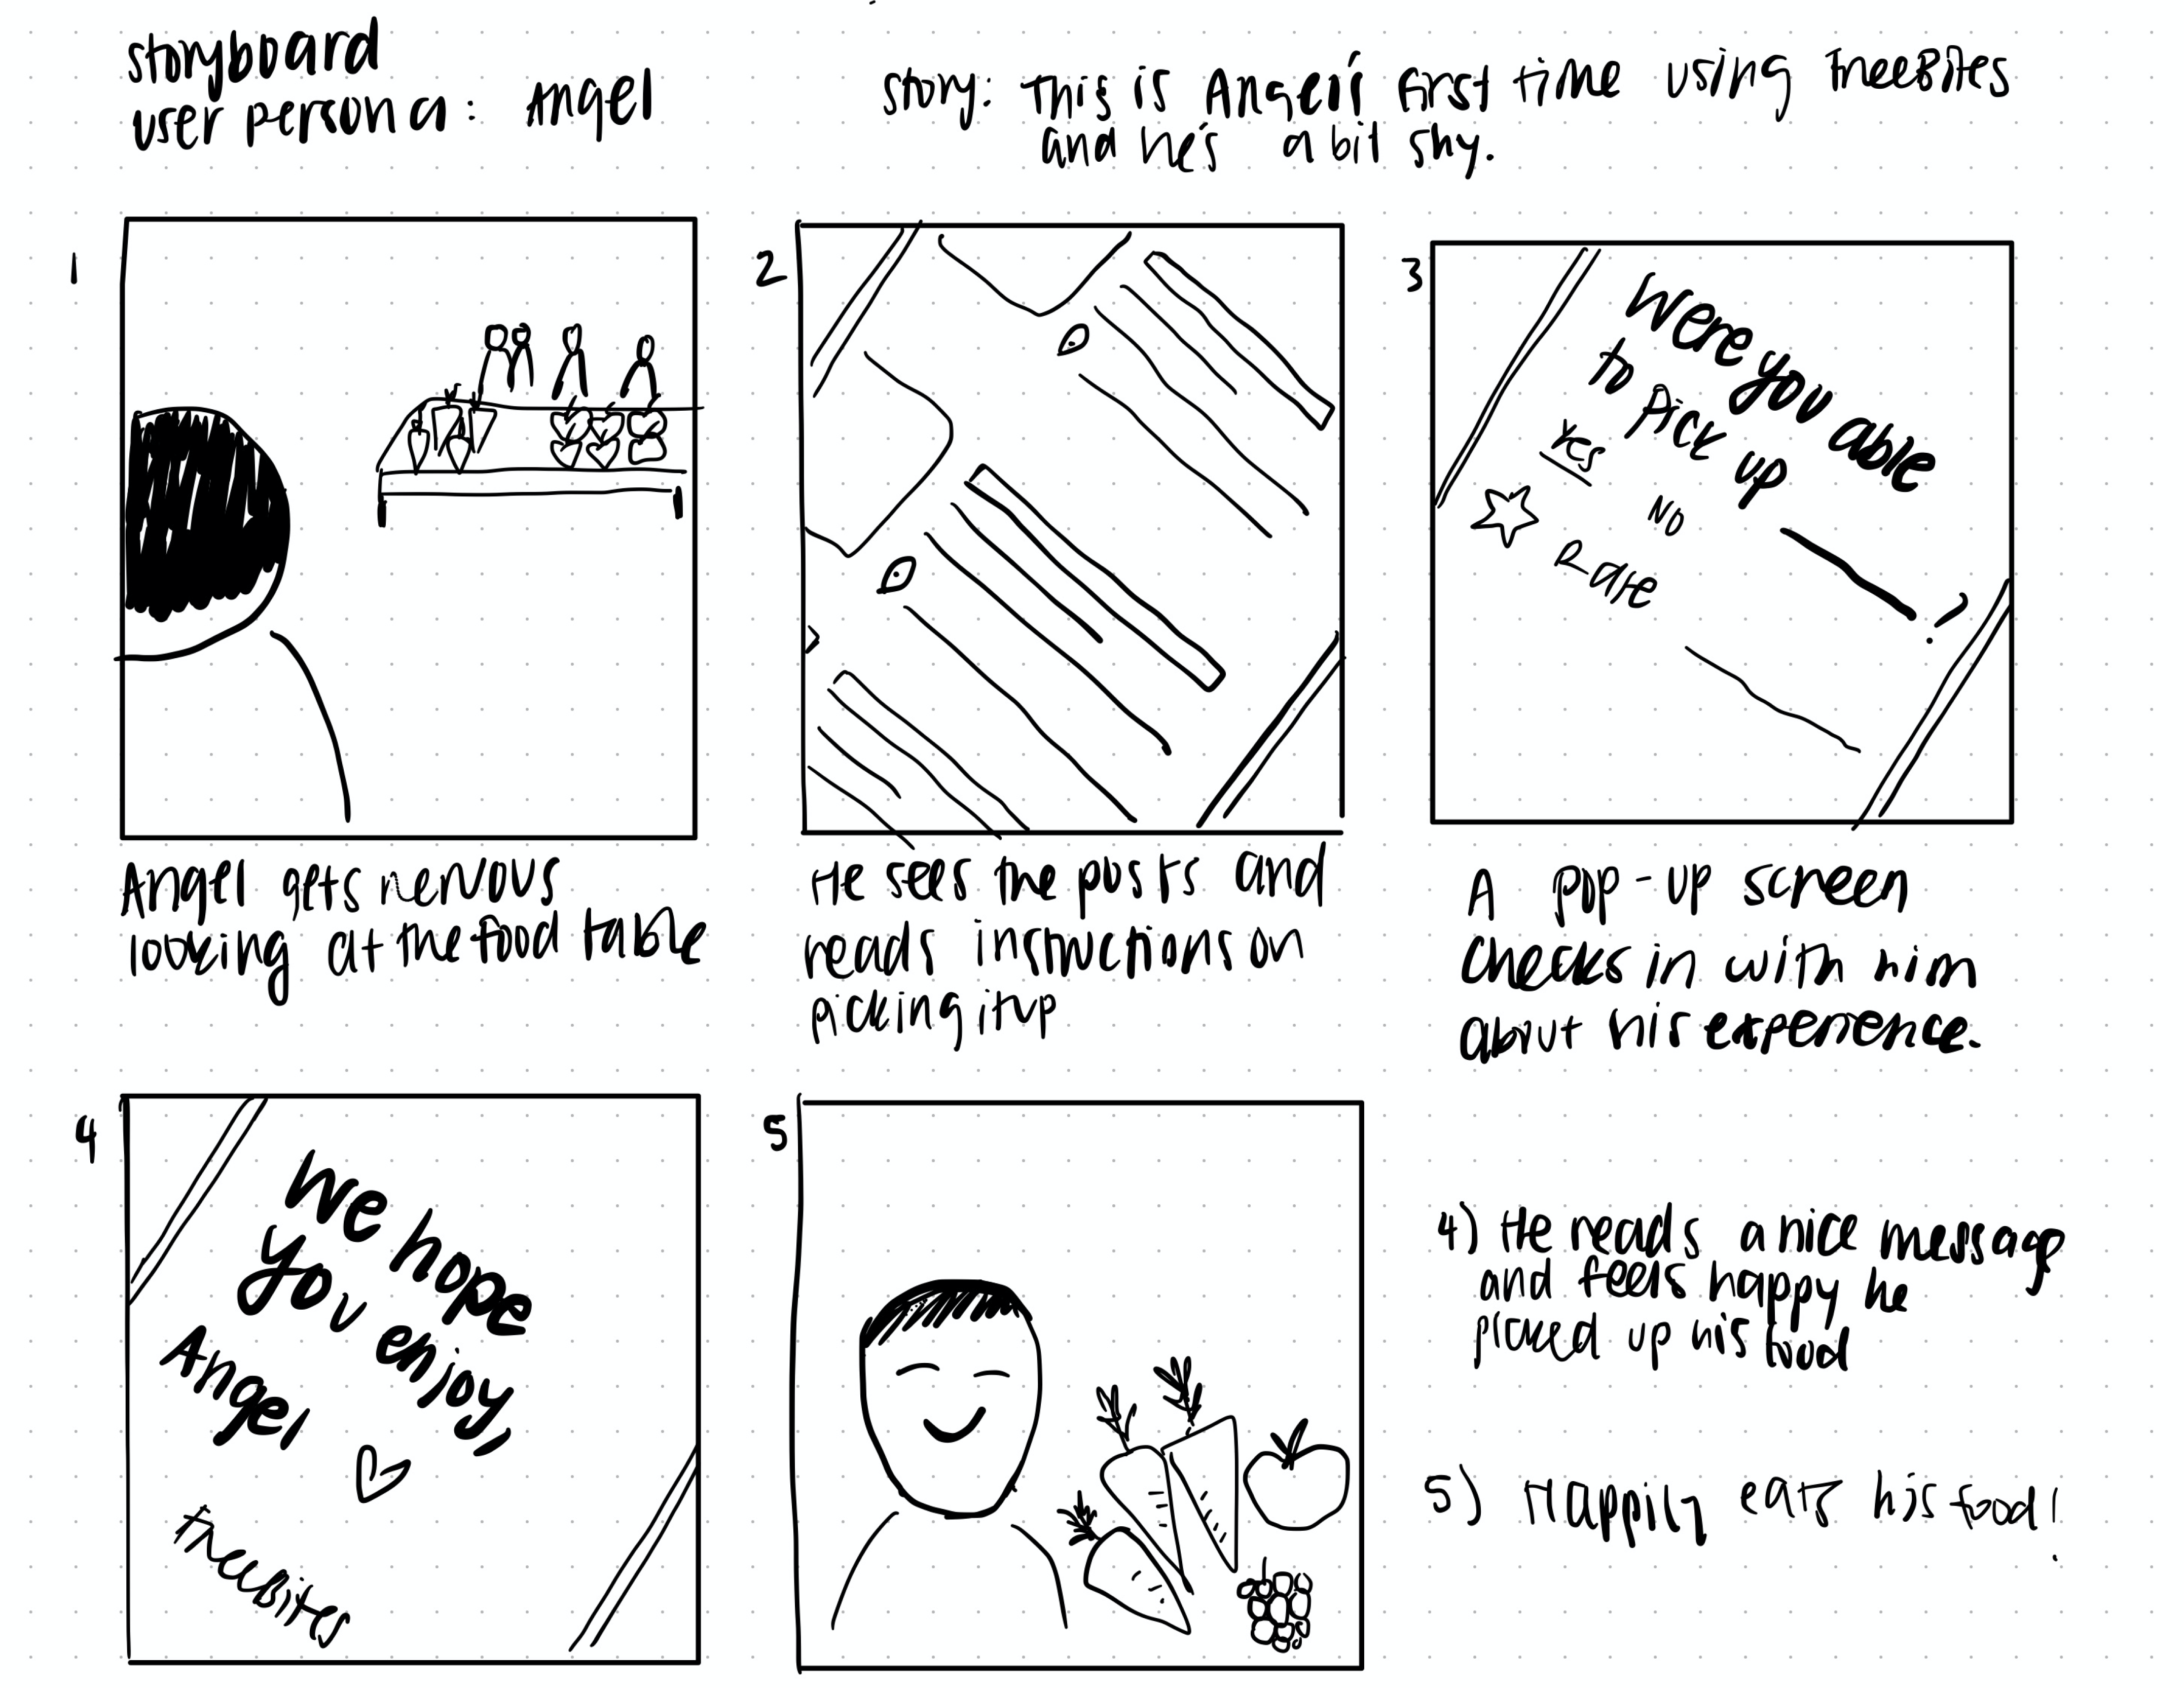 storyboard
user persona: Angel
story: This is Angel's first time using FreeBites
and he's a bit shy.
1
2
3
Were you able
to Pick up
Yes
No
Rate
?
Angel gets nervous
looking at the food table
He sees the posts and
reads instructions on
picking it up
A pop-up screen
checks in with him
about his experience.
4
We hope
you enjoy
Angel
Freebites
5
4) He reads a nice message
and feels happy he
picked up his food
5) Happily eats his food!